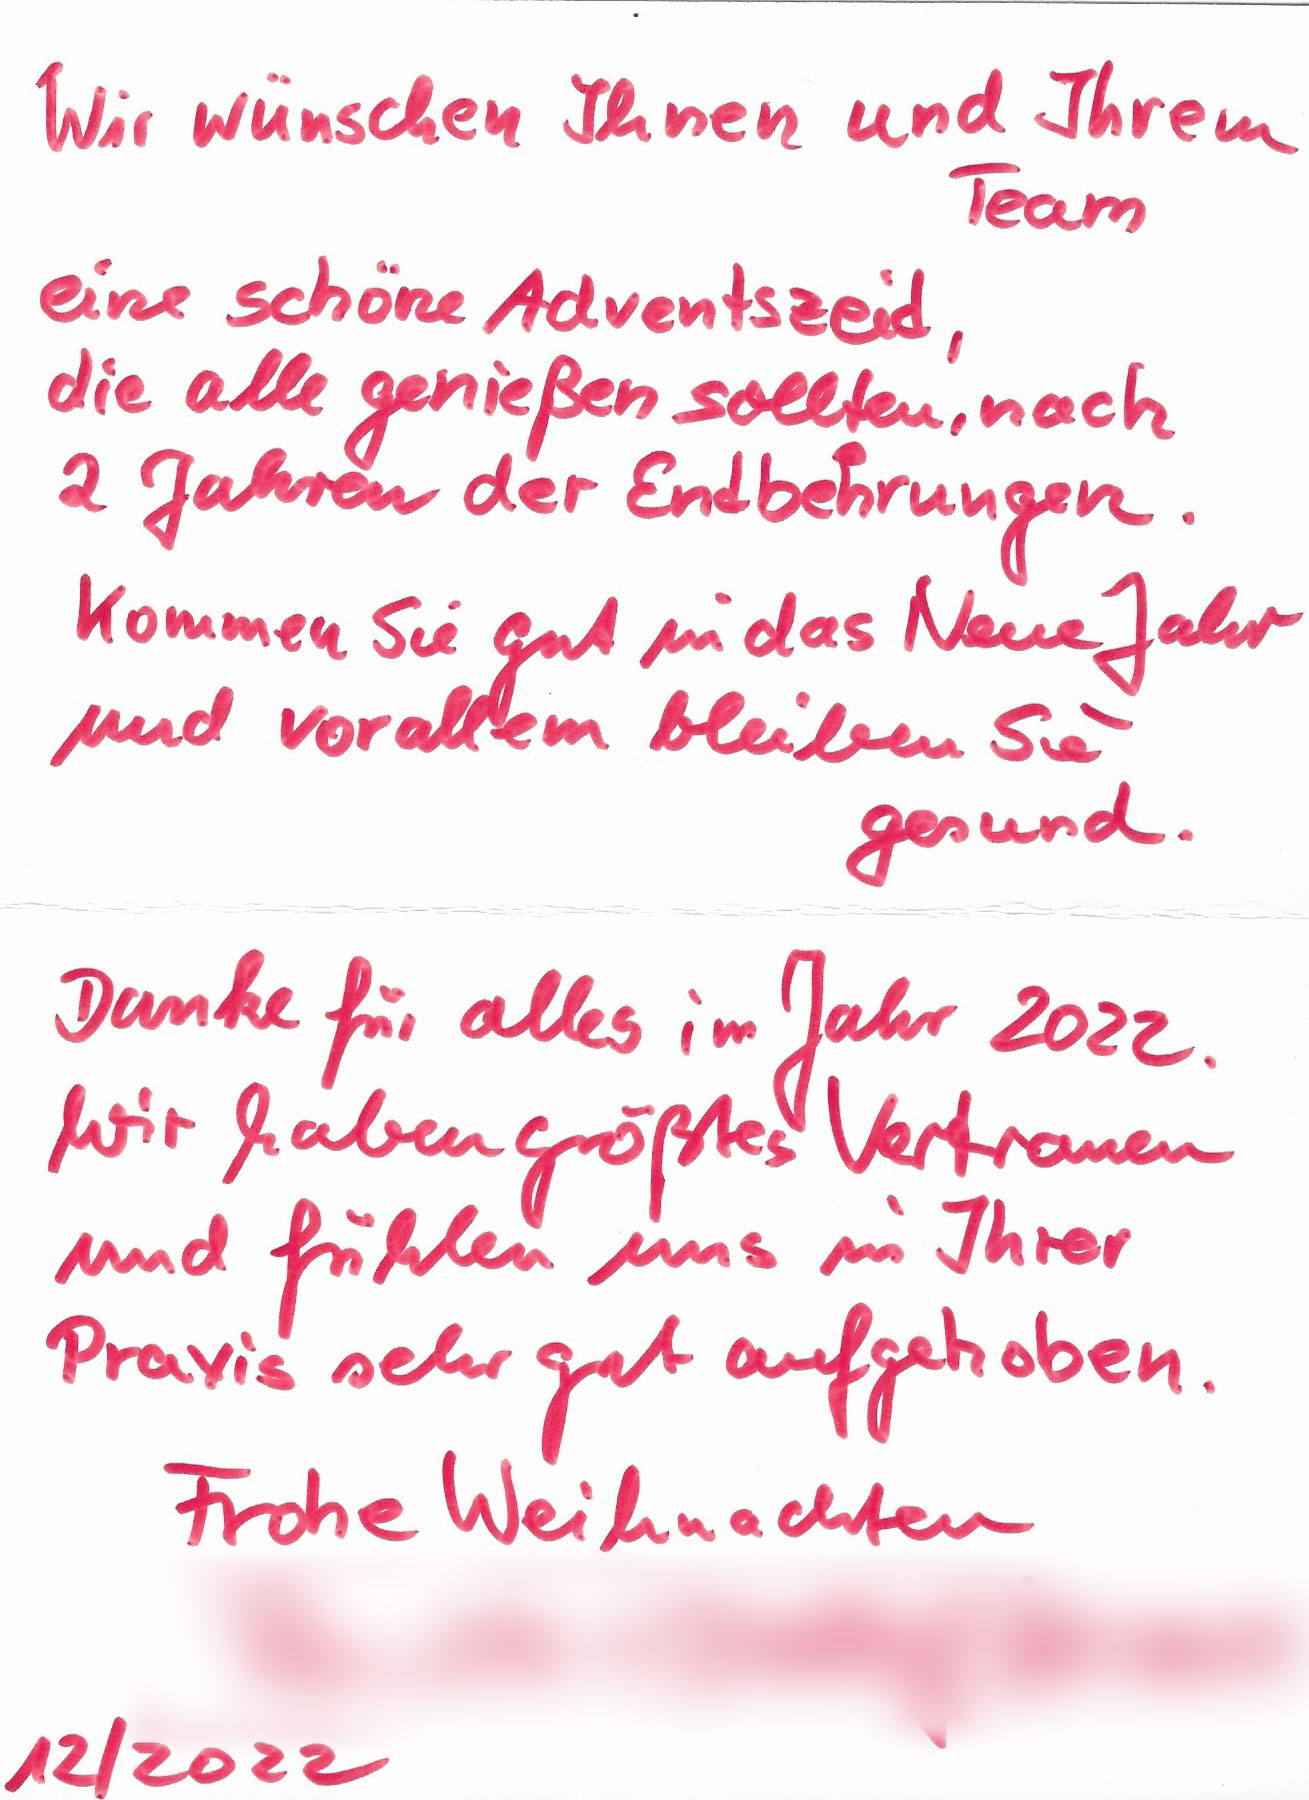 Wir wünschen Ihnen und Ihrem
Team
eine schöne Adventszeid,
die alle genießen sollten, nach
2 Jahren der Endbehrungen.
Kommen Sie gut in das Neue Jahr
und vorallem bleiben Sie
gesund.
Danke für alles im Jahr 2022.
Wir haben größtes Vertrauen
und fühlen uns in Ihrer
Praxis sehr gut aufgehoben.
Frohe Weihnachten
12/2022